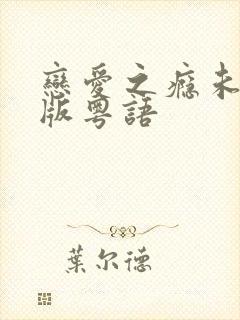 戀愛之癮未
版粵語
葉尔德